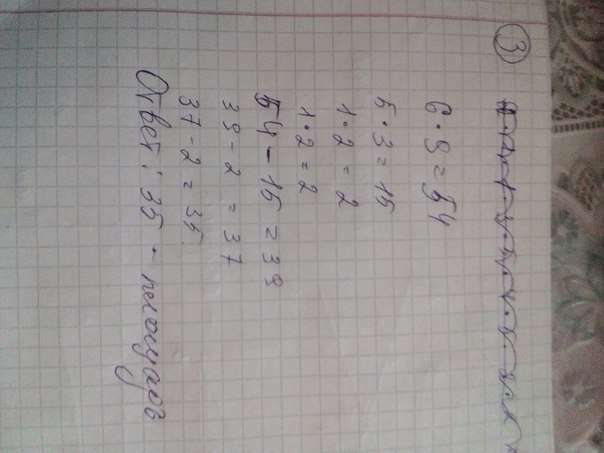 3
6 · 9 = 54
5 · 3 = 15
1 · 2 = 2
1 · 2 = 2
54 - 15 = 39
39 - 2 = 37
37 - 2 = 35
Ответ : 35 - площадь